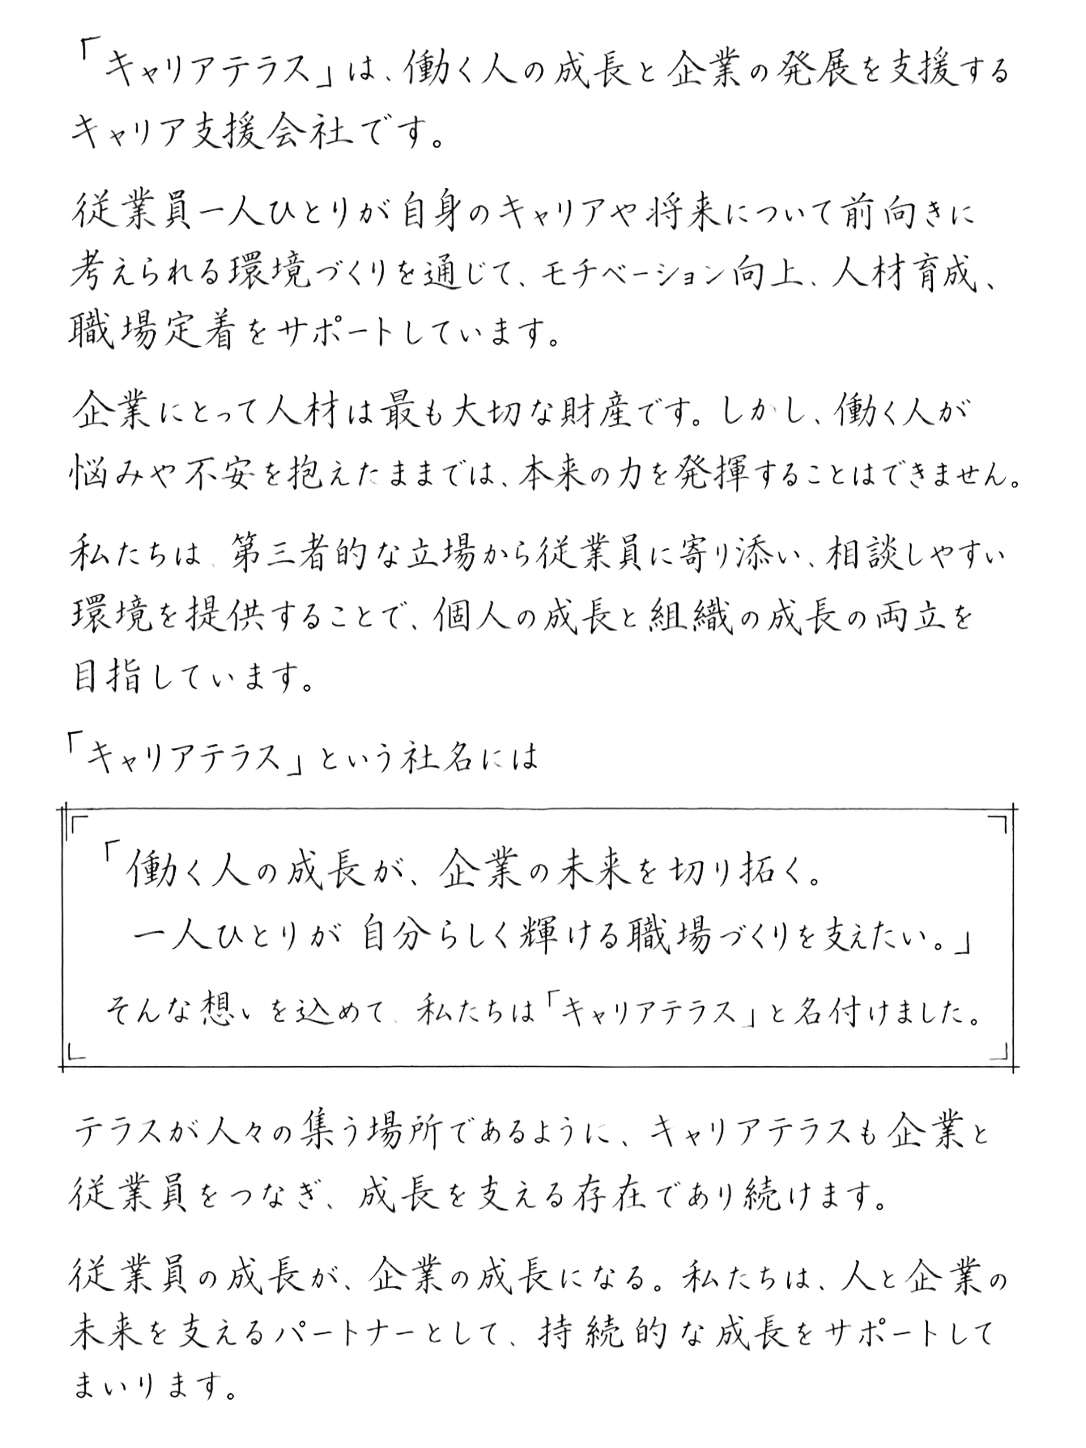 「キャリアテラス」は、働く人の成長と企業の発展を支援する
キャリア支援会社です。
従業員一人ひとりが自身のキャリアや将来について前向きに
考えられる環境づくりを通じて、モチベーション向上、人材育成、
職場定着をサポートしています。
企業にとって人材は最も大切な財産です。しかし、働く人が
悩みや不安を抱えたままでは、本来の力を発揮することはできません。
私たちは、第三者的な立場から従業員に寄り添い、相談しやすい
環境を提供することで、個人の成長と組織の成長の両立を
目指しています。
「キャリアテラス」という社名には
「働く人の成長が、企業の未来を切り拓く。
一人ひとりが自分らしく輝ける職場づくりを支えたい。」
そんな想いを込めて、私たちは「キャリアテラス」と名付けました。
テラスが人々の集う場所であるように、キャリアテラスも企業と
従業員をつなぎ、成長を支える存在であり続けます。
従業員の成長が、企業の成長になる。私たちは、人と企業の
未来を支えるパートナーとして、持続的な成長をサポートして
まいります。